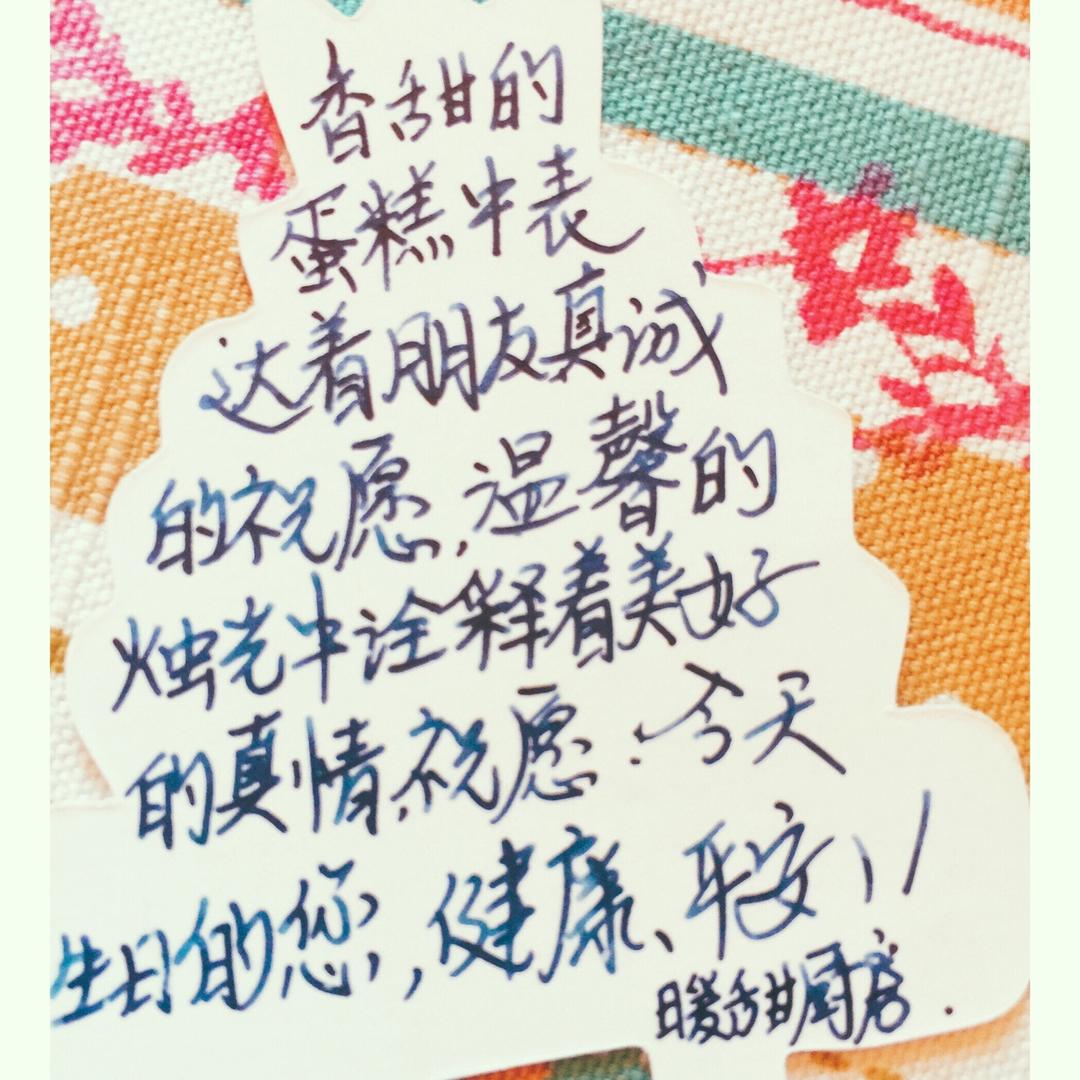 香甜的
蛋糕中表
达着朋友真诚
的祝愿,温馨的
烛光中诠释着美好
的真情,祝愿:今天
生日的您,健康、平安!!
暖甜厨房.